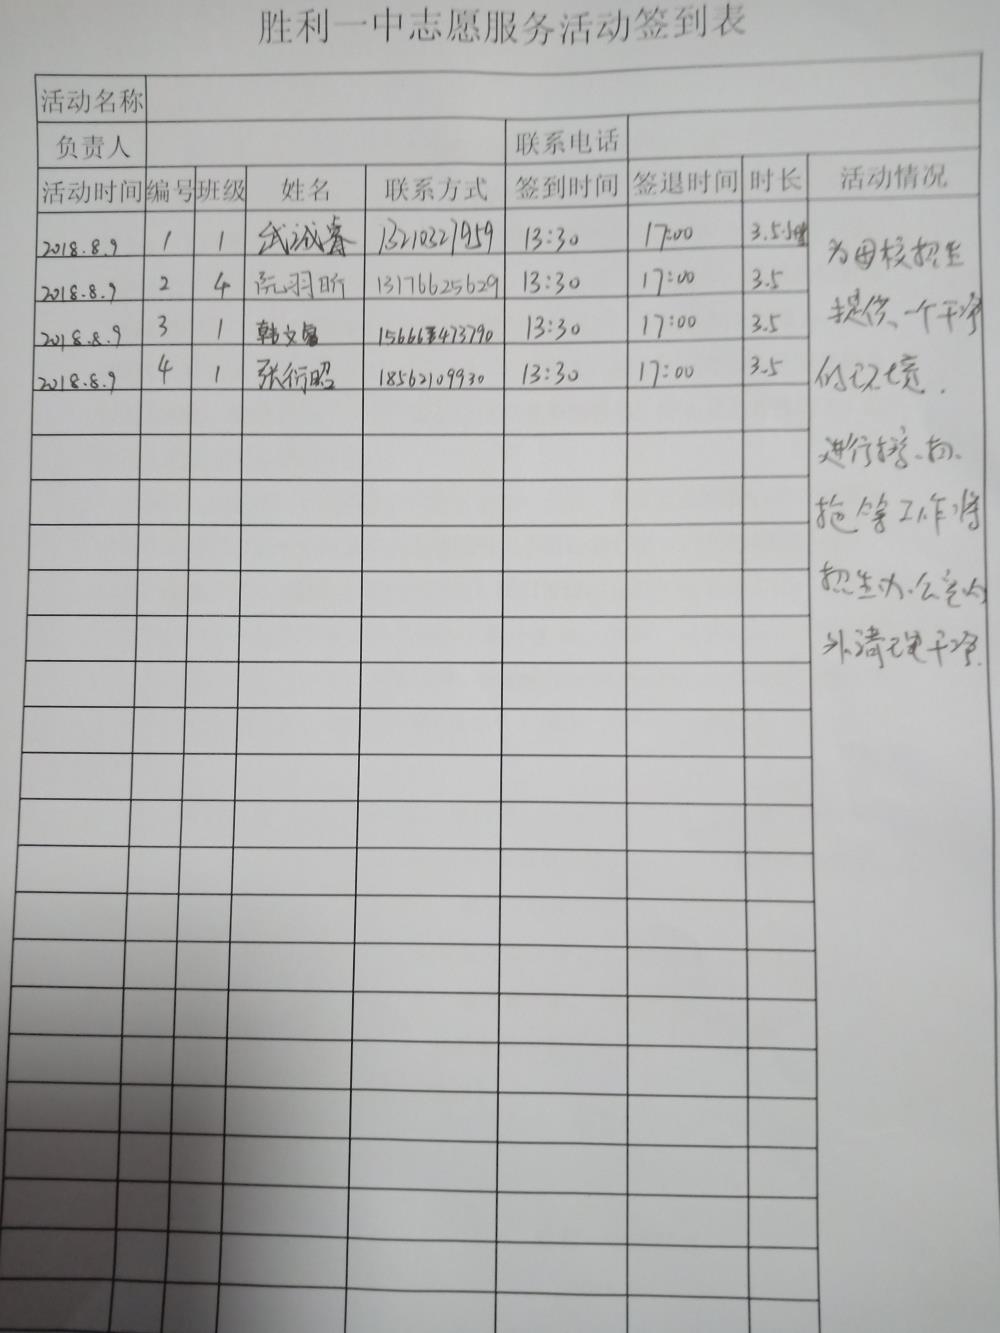 胜利一中志愿服务活动签到表
活动名称
负责人 联系电话
活动时间 编号 班级 姓名 联系方式 签到时间 签退时间 时长 活动情况
2018.8.9 1 1 武诚睿 13210327959 13:30 17:00 3.5小时
2018.8.9 2 4 阮羽昕 13176625629 13:30 17:00 3.5
2018.8.9 3 1 韩文睿 13:30 17:00 3.5
2018.8.9 4 1 张衍昭 18562109930 13:30 17:00 3.5
为母校招生
提供一个干净
的环境.
进行擦、扫、
拖等工作将
招生办公室内
外清理干净.